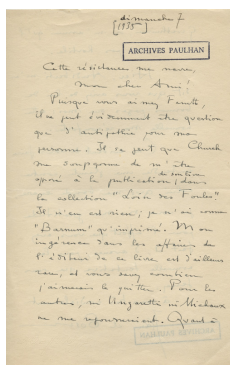 dimanche 7
[1935]
ARCHIVES PAULHAN
Cette résistance me navre,
mon cher Ami!
Puisque vous aimez Fente,
il ne peut évidemment être question
que d'antipathie pour ma
personne. Il se peut que Church
me soupçonne de m'être
opposé à la publication de son livre dans
la collection "Loin des Foules"
Il n'en est rien; je n'ai connu
"Barnum" qu'imprimé. Mon
ingérence dans les affaires de
l'éditeur de ce livre est d'ailleurs
rare, et vous savez combien
j'aimerais le quitter. Pour les
autres, ni Ungaretti ni Michaux
ne me repousseraient. Quant à